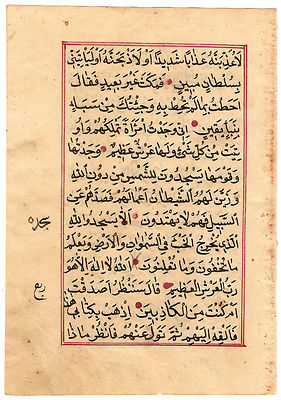 لَأُعَذِّبَنَّهُ عَذَابًا شَدِيدًا أَوْ لَأَذْبَحَنَّهُ أَوْ لَيَأْتِيَنِّي
بِسُلْطَانٍ مُبِينٍ فَمَكَثَ غَيْرَ بَعِيدٍ فَقَالَ
أَحَطْتُ بِمَا لَمْ تُحِطْ بِهِ وَجِئْتُكَ مِنْ سَبَإٍ
بِنَبَإٍ يَقِينٍ إِنِّي وَجَدْتُ امْرَأَةً تَمْلِكُهُمْ وَأُو
تِيَتْ مِنْ كُلِّ شَيْءٍ وَلَهَا عَرْشٌ عَظِيمٌ وَجَدْتُهَا
وَقَوْمَهَا يَسْجُدُونَ لِلشَّمْسِ مِنْ دُونِ اللَّهِ
وَزَيَّنَ لَهُمُ الشَّيْطَانُ أَعْمَالَهُمْ فَصَدَّهُمْ عَنِ
السَّبِيلِ فَهُمْ لَا يَهْتَدُونَ أَلَّا يَسْجُدُوا لِلَّهِ
الَّذِي يُخْرِجُ الْخَبْءَ فِي السَّمَوَاتِ وَالْأَرْضِ وَيَعْلَمُ
مَا تُخْفُونَ وَمَا تُعْلِنُونَ اللَّهُ لَا إِلَهَ إِلَّا هُوَ
رَبُّ الْعَرْشِ الْعَظِيمِ قَالَ سَنَنْظُرُ أَصَدَقْتَ
أَمْ كُنْتَ مِنَ الْكَاذِبِينَ اذْهَبْ بِكِتَابِي هَذَا
فَأَلْقِهْ إِلَيْهِمْ ثُمَّ تَوَلَّ عَنْهُمْ فَانْظُرْ مَاذَا